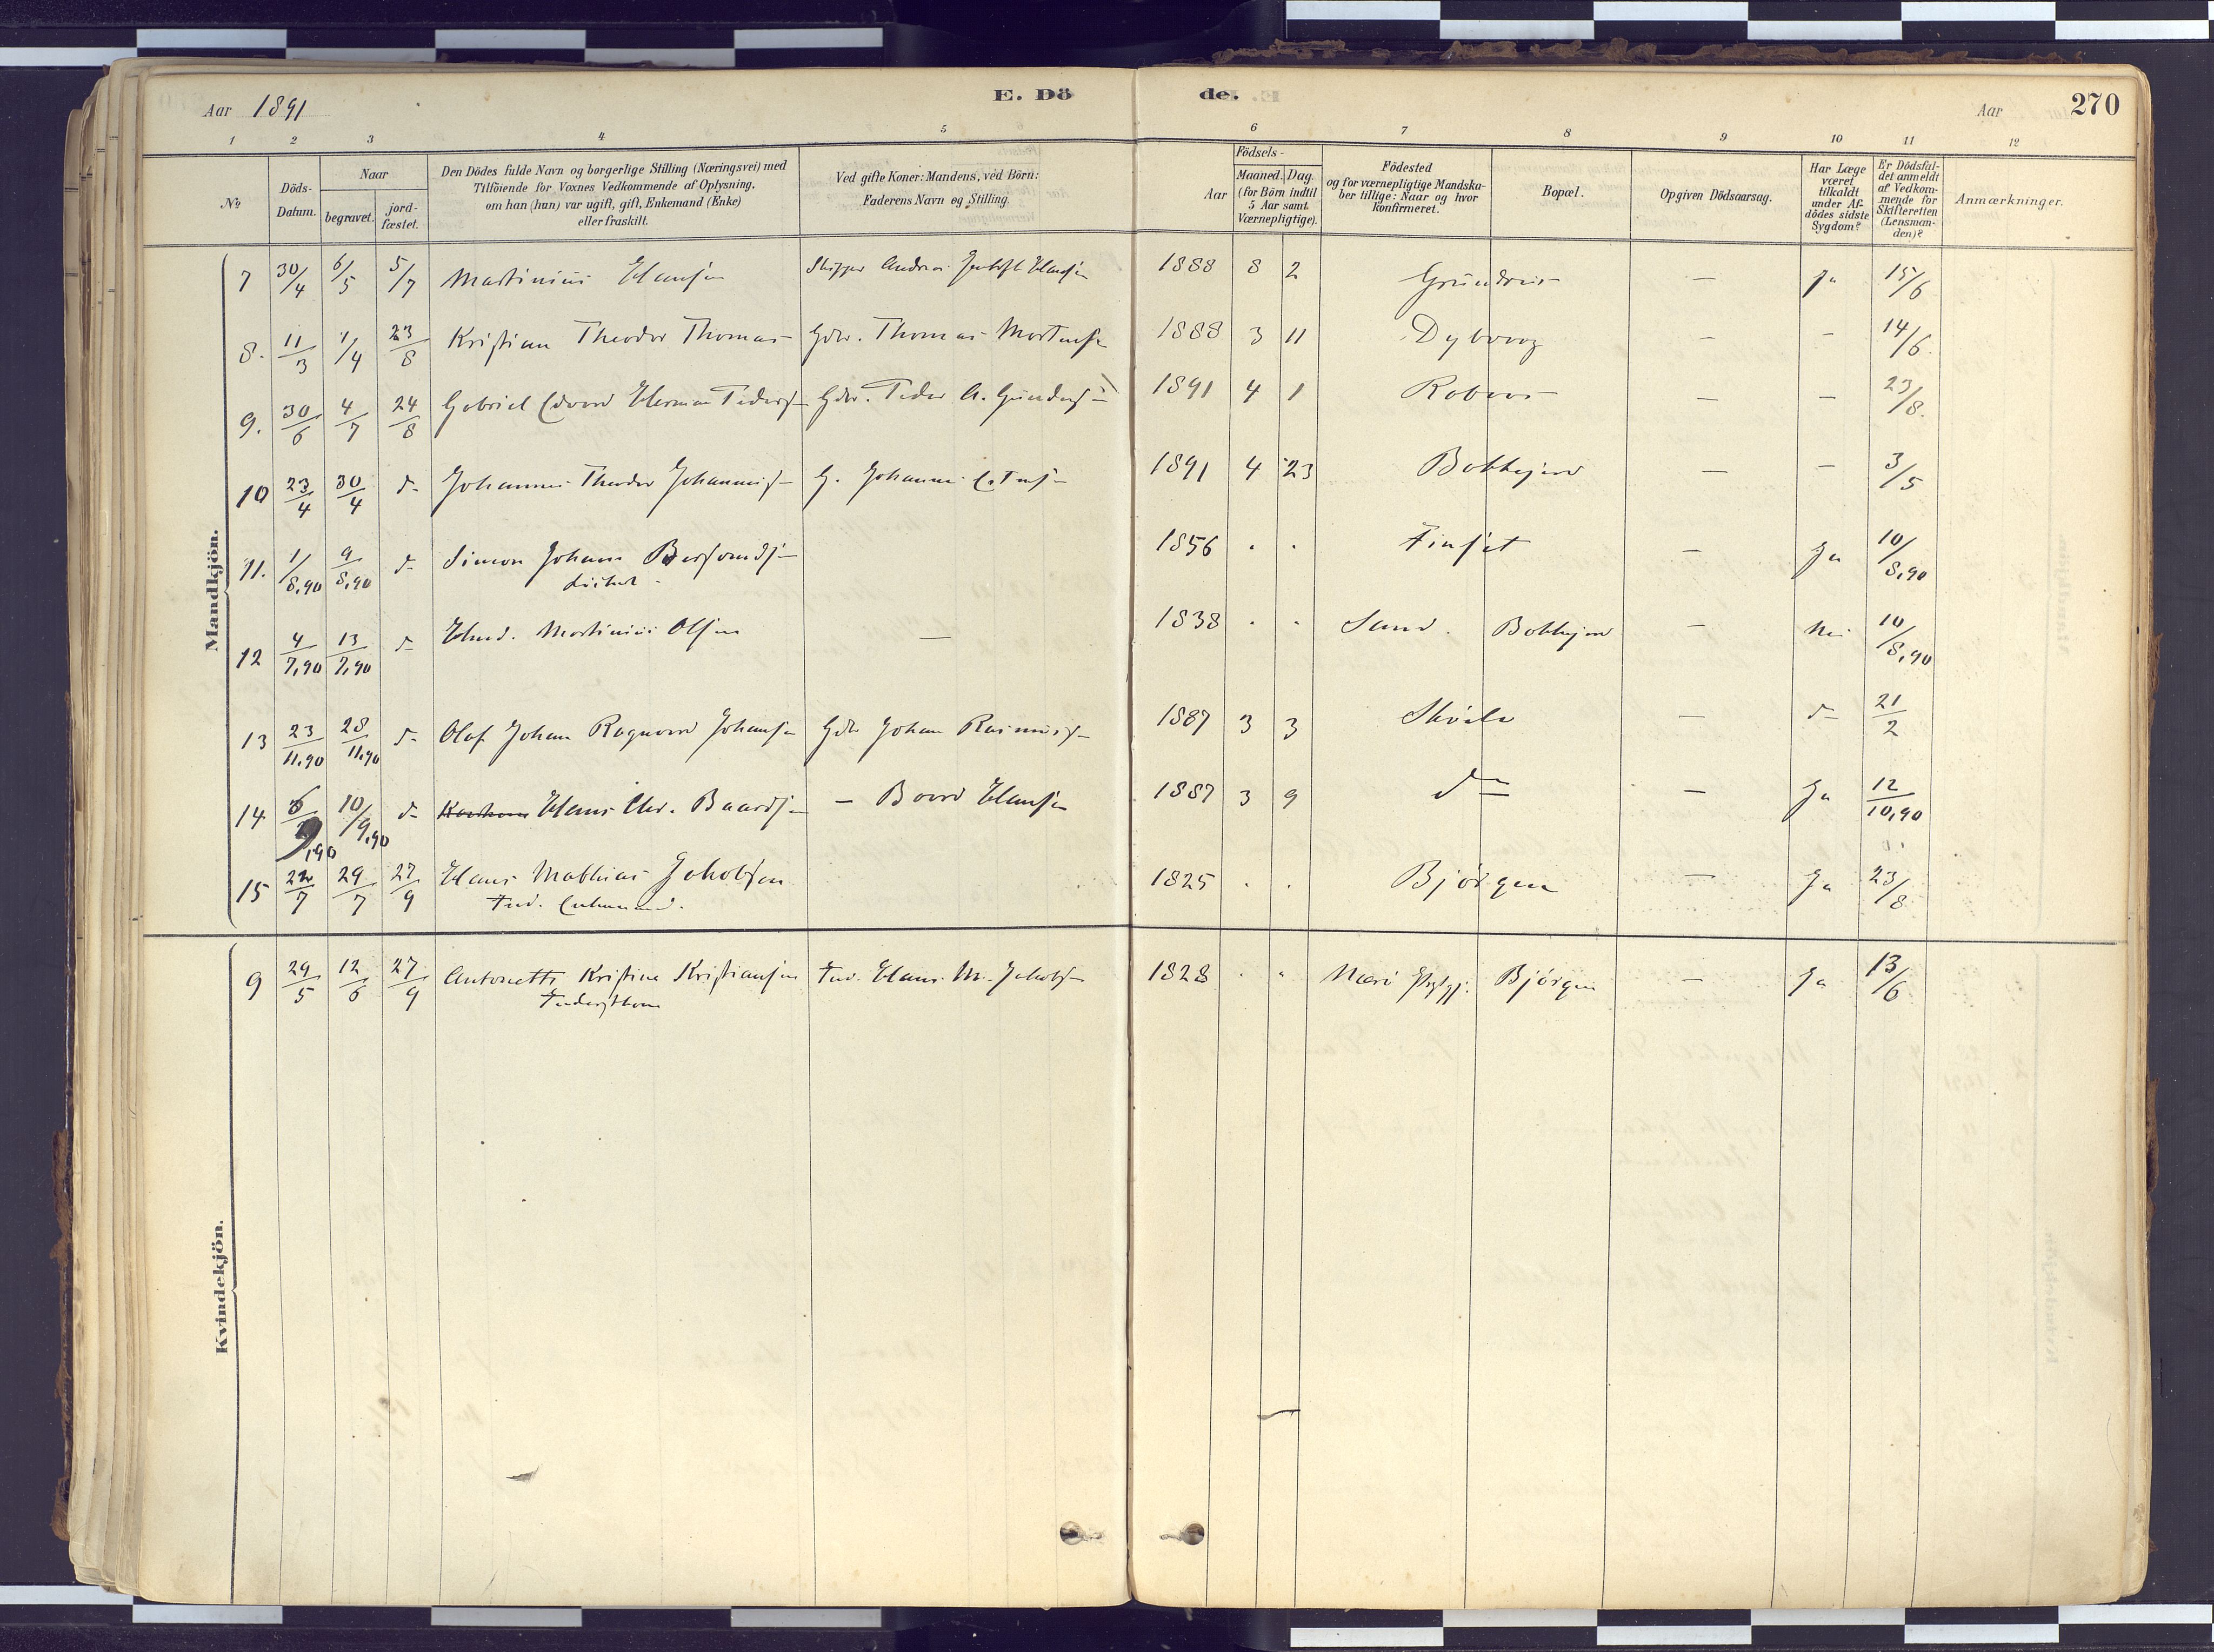 Aar 1891
E. Dö
de.
Aar
270
1 2 3 4 5 6 7 8 9 10 11 12
No
Döds-Datum.
Naar
begravet.
jord-fæstet.
Den Dödes fulde Navn og borgerlige Stilling (Næringsvei) med
Tilföiende for Voxnes Vedkommende af Oplysning,
om han (hun) var ugift, gift, Enkemand (Enke)
eller fraskilt.
Ved gifte Koner: Mandens, ved Börn:
Faderens Navn og Stilling.
Födsels-
Aar
Maaned. Dag.
(for Börn indtil
5 Aar samt
Værnepligtige).
Födested
og for værnepligtige Mandska-
ber tillige: Naar og hvor
konfirmeret.
Bopæl.
Opgiven Dödsaarsag.
Har Læge
været
tilkaldt
under Af-
dödes sidste
Sygdom?
Er Dödsfal-
det anmeldt
af Vedkom-
mende for
Skifteretten
(Lensman-
den)?
Anmærkninger.
Mandkjön.
7 30/4 6/5 5/7 Martinius Hansen Skipper Andreas Hansen 1888 8 2 — Ja 15/6
8. 11/3 1/4 23/8 Kristian Theodor Thomas- Gdbr. Thomas Mortens 1888 3 11 Dybvaag — - 14/6
9. 30/6 4/7 24/8 Gabriel Edvard Herman Peders- Gdbr. Peder A. Gunders- 1891 4 1 — - 23/8.
10 23/4 30/4 d- Johannes Theodor Johannes- G. Johannes 1891 4 23 — - 3/5
11. 1/8,90 9/8,90 d- Simon Johan 1856 . . — Ja 10/8,90
12 4/7,90 13/7,90 d- Martinius Olsen — 1838 . . Sand. — Nei 10/8,90
13 23/11,90 28/11,90 d- Olaf Johan Ragnvard Johansen Gdb Johan Rasmus- 1887 3 3 — d- 21/2
14 6/9,90 10/9,90 d- Hans Chr. Baards- — Baard Hansen 1887 3 9 d- — Ja 12/10,90
15 22/7 29/7 27/9 Hans Mathias Jakobsen 1825 . . Bjørgen — Ja 23/8
Ind. Enkemand.
Kvindekjön.
9 29/5 12/6 27/9 Antonette Kristine Kristiansen Ind. Hans M. Jakobs- 1828 . . Nærø Bjørgen — Ja 13/6